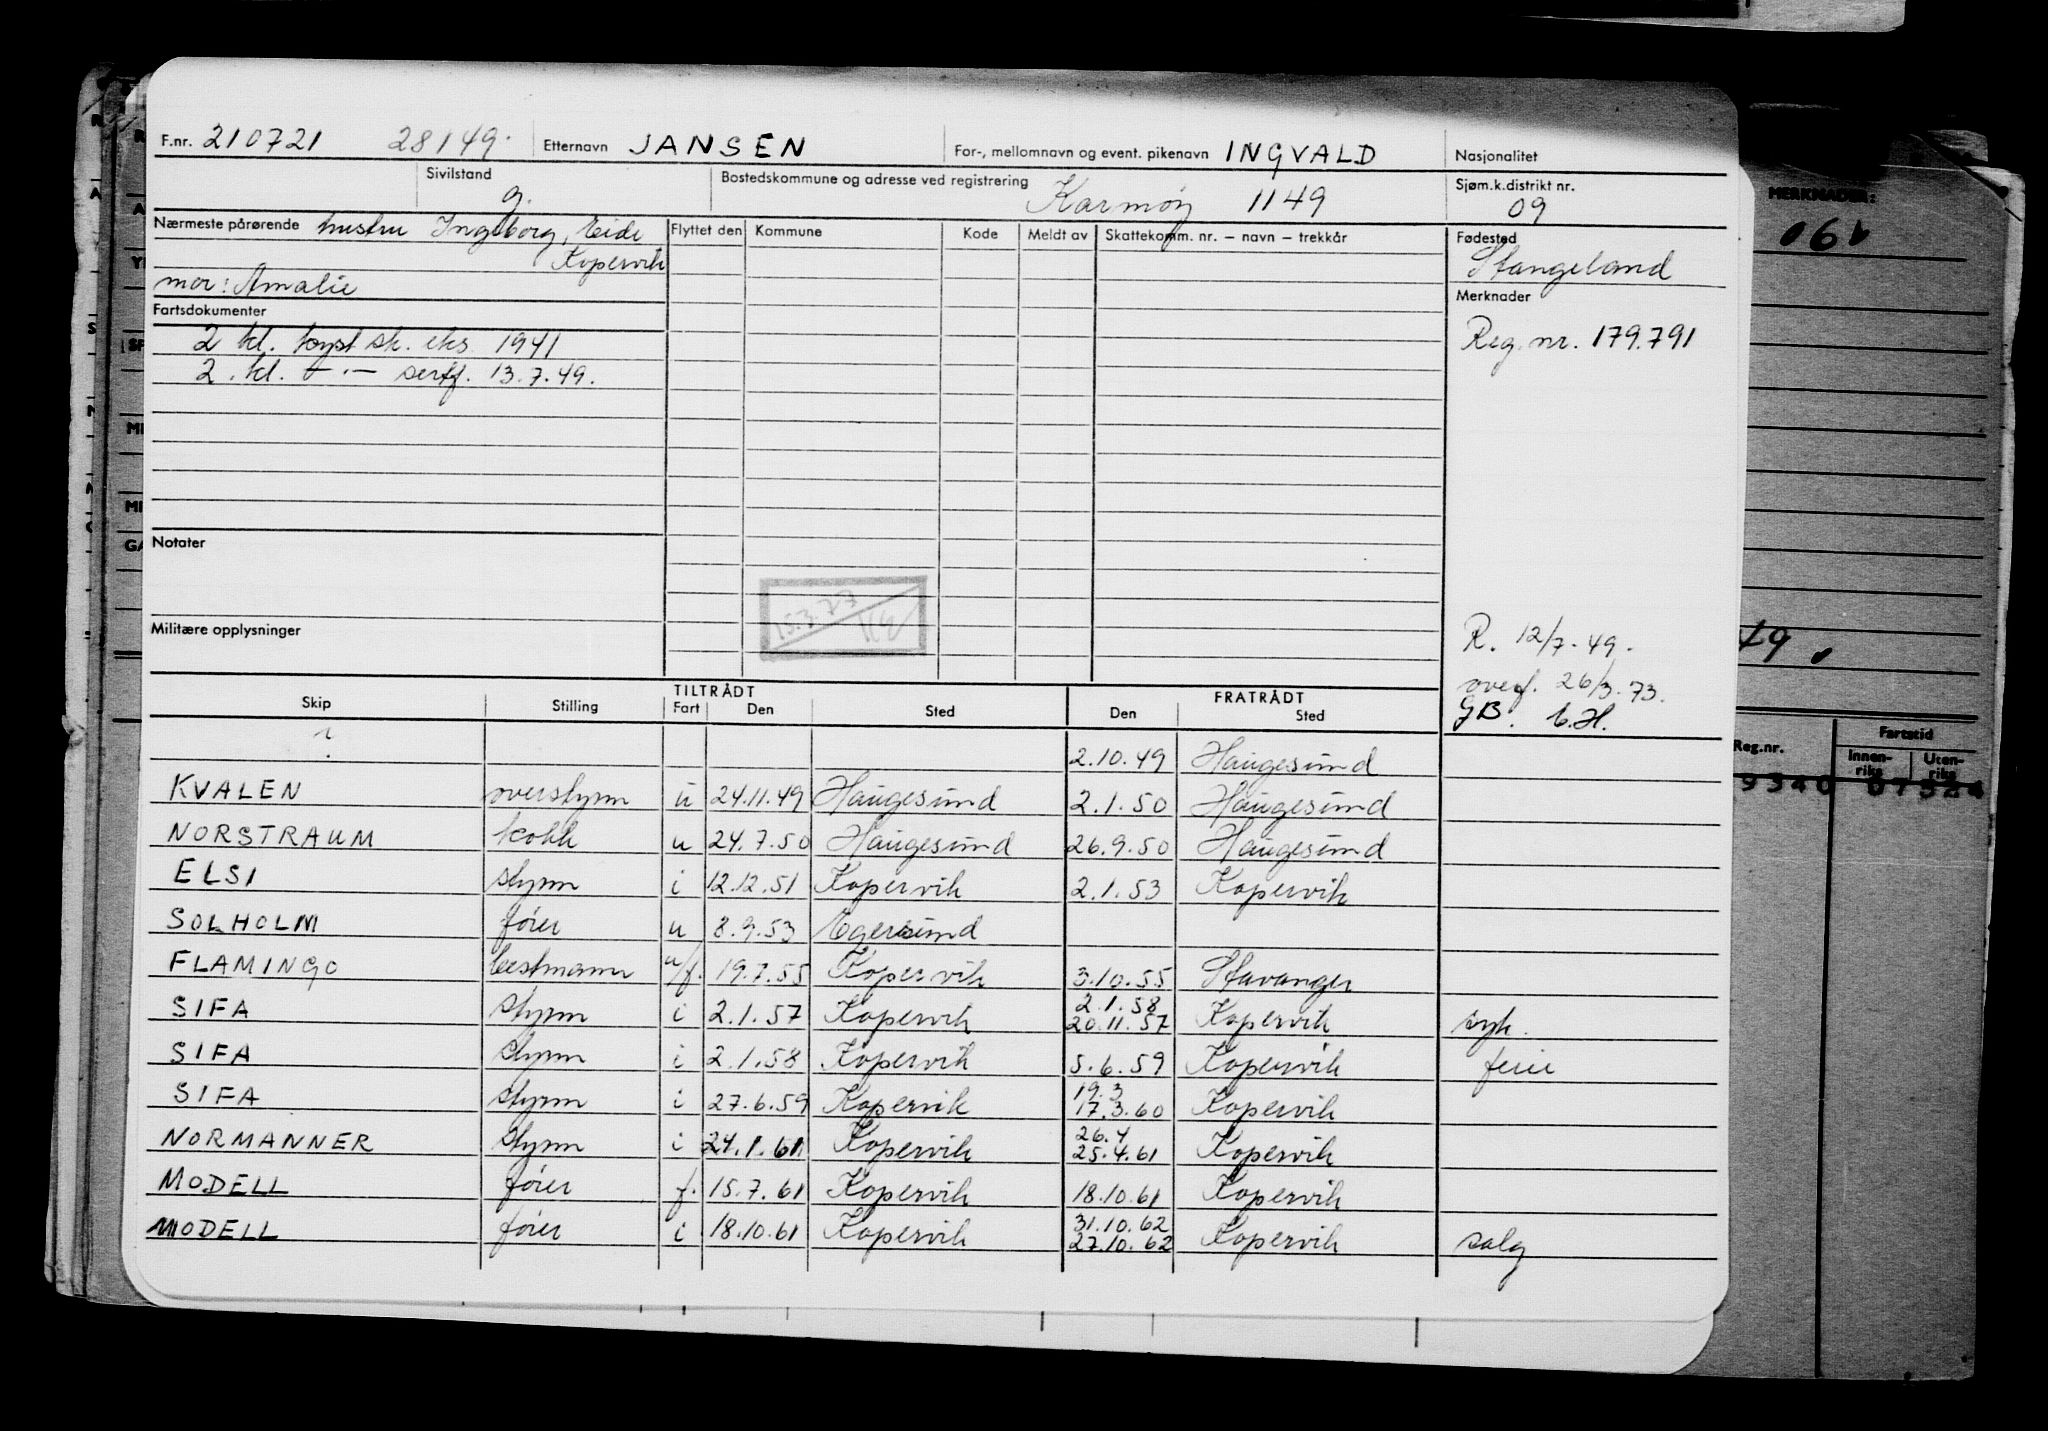 F.nr. 210721 28149. Etternavn JANSEN For-, mellomnavn og event. pikenavn INGVALD Nasjonalitet
Sivilstand g. Bostedskommune og adresse ved registrering Karmøy 1149 Sjøm.k.distrikt nr. 09
Nærmeste pårørende hustru Ingeborg, Eide Flyttet den Kommune Kode Meldt av Skattekomm. nr. – navn – trekkår Fødested
Kopervik Stangeland
mor: Amalie Merknader
Fartsdokumenter
2 kl. kyst sk. eks. 1941 Reg. nr. 179.791
2. kl. — . — sertf. 13.7.49.
Notater
15.3.77
Militære opplysninger R. 12/7-49.
overf. 26/3.73.
GB.
TILTRÅDT FRATRÅDT
Skip Stilling Fart Den Sted Den Sted
? 2.10.49 Haugesund
KVALEN overstyrm u 24.11.49 Haugesund 2.1.50 Haugesund
NORSTRAUM kokk u 24.7.50 Haugesund 26.9.50 Haugesund
ELSI styrm i 12.12.51 Kopervik 2.1.53 Kopervik
SOLHOLM fører u 8.9.53 Egersund
FLAMINGO bestmann u/f. 19.7.55 Kopervik 3.10.55 Stavanger
SIFA styrm i 2.1.57 Kopervik 2.1.58 20.11.57 Kopervik syk.
SIFA styrm i 2.1.58 Kopervik 5.6.59 Kopervik ferie
SIFA styrm i 27.6.59 Kopervik 19.3 17.3.60 Kopervik
NORMANNER styrm i 24.1.61 Kopervik 26.4 25.4.61 Kopervik
MODELL fører f. 15.7.61 Kopervik 18.10.61 Kopervik
MODELL fører i 18.10.61 Kopervik 31.10.62 27.10.62 Kopervik salg
MERKNADER:
061
49.
Reg.nr. Fartstid
Innen-riks Uten-riks
9340